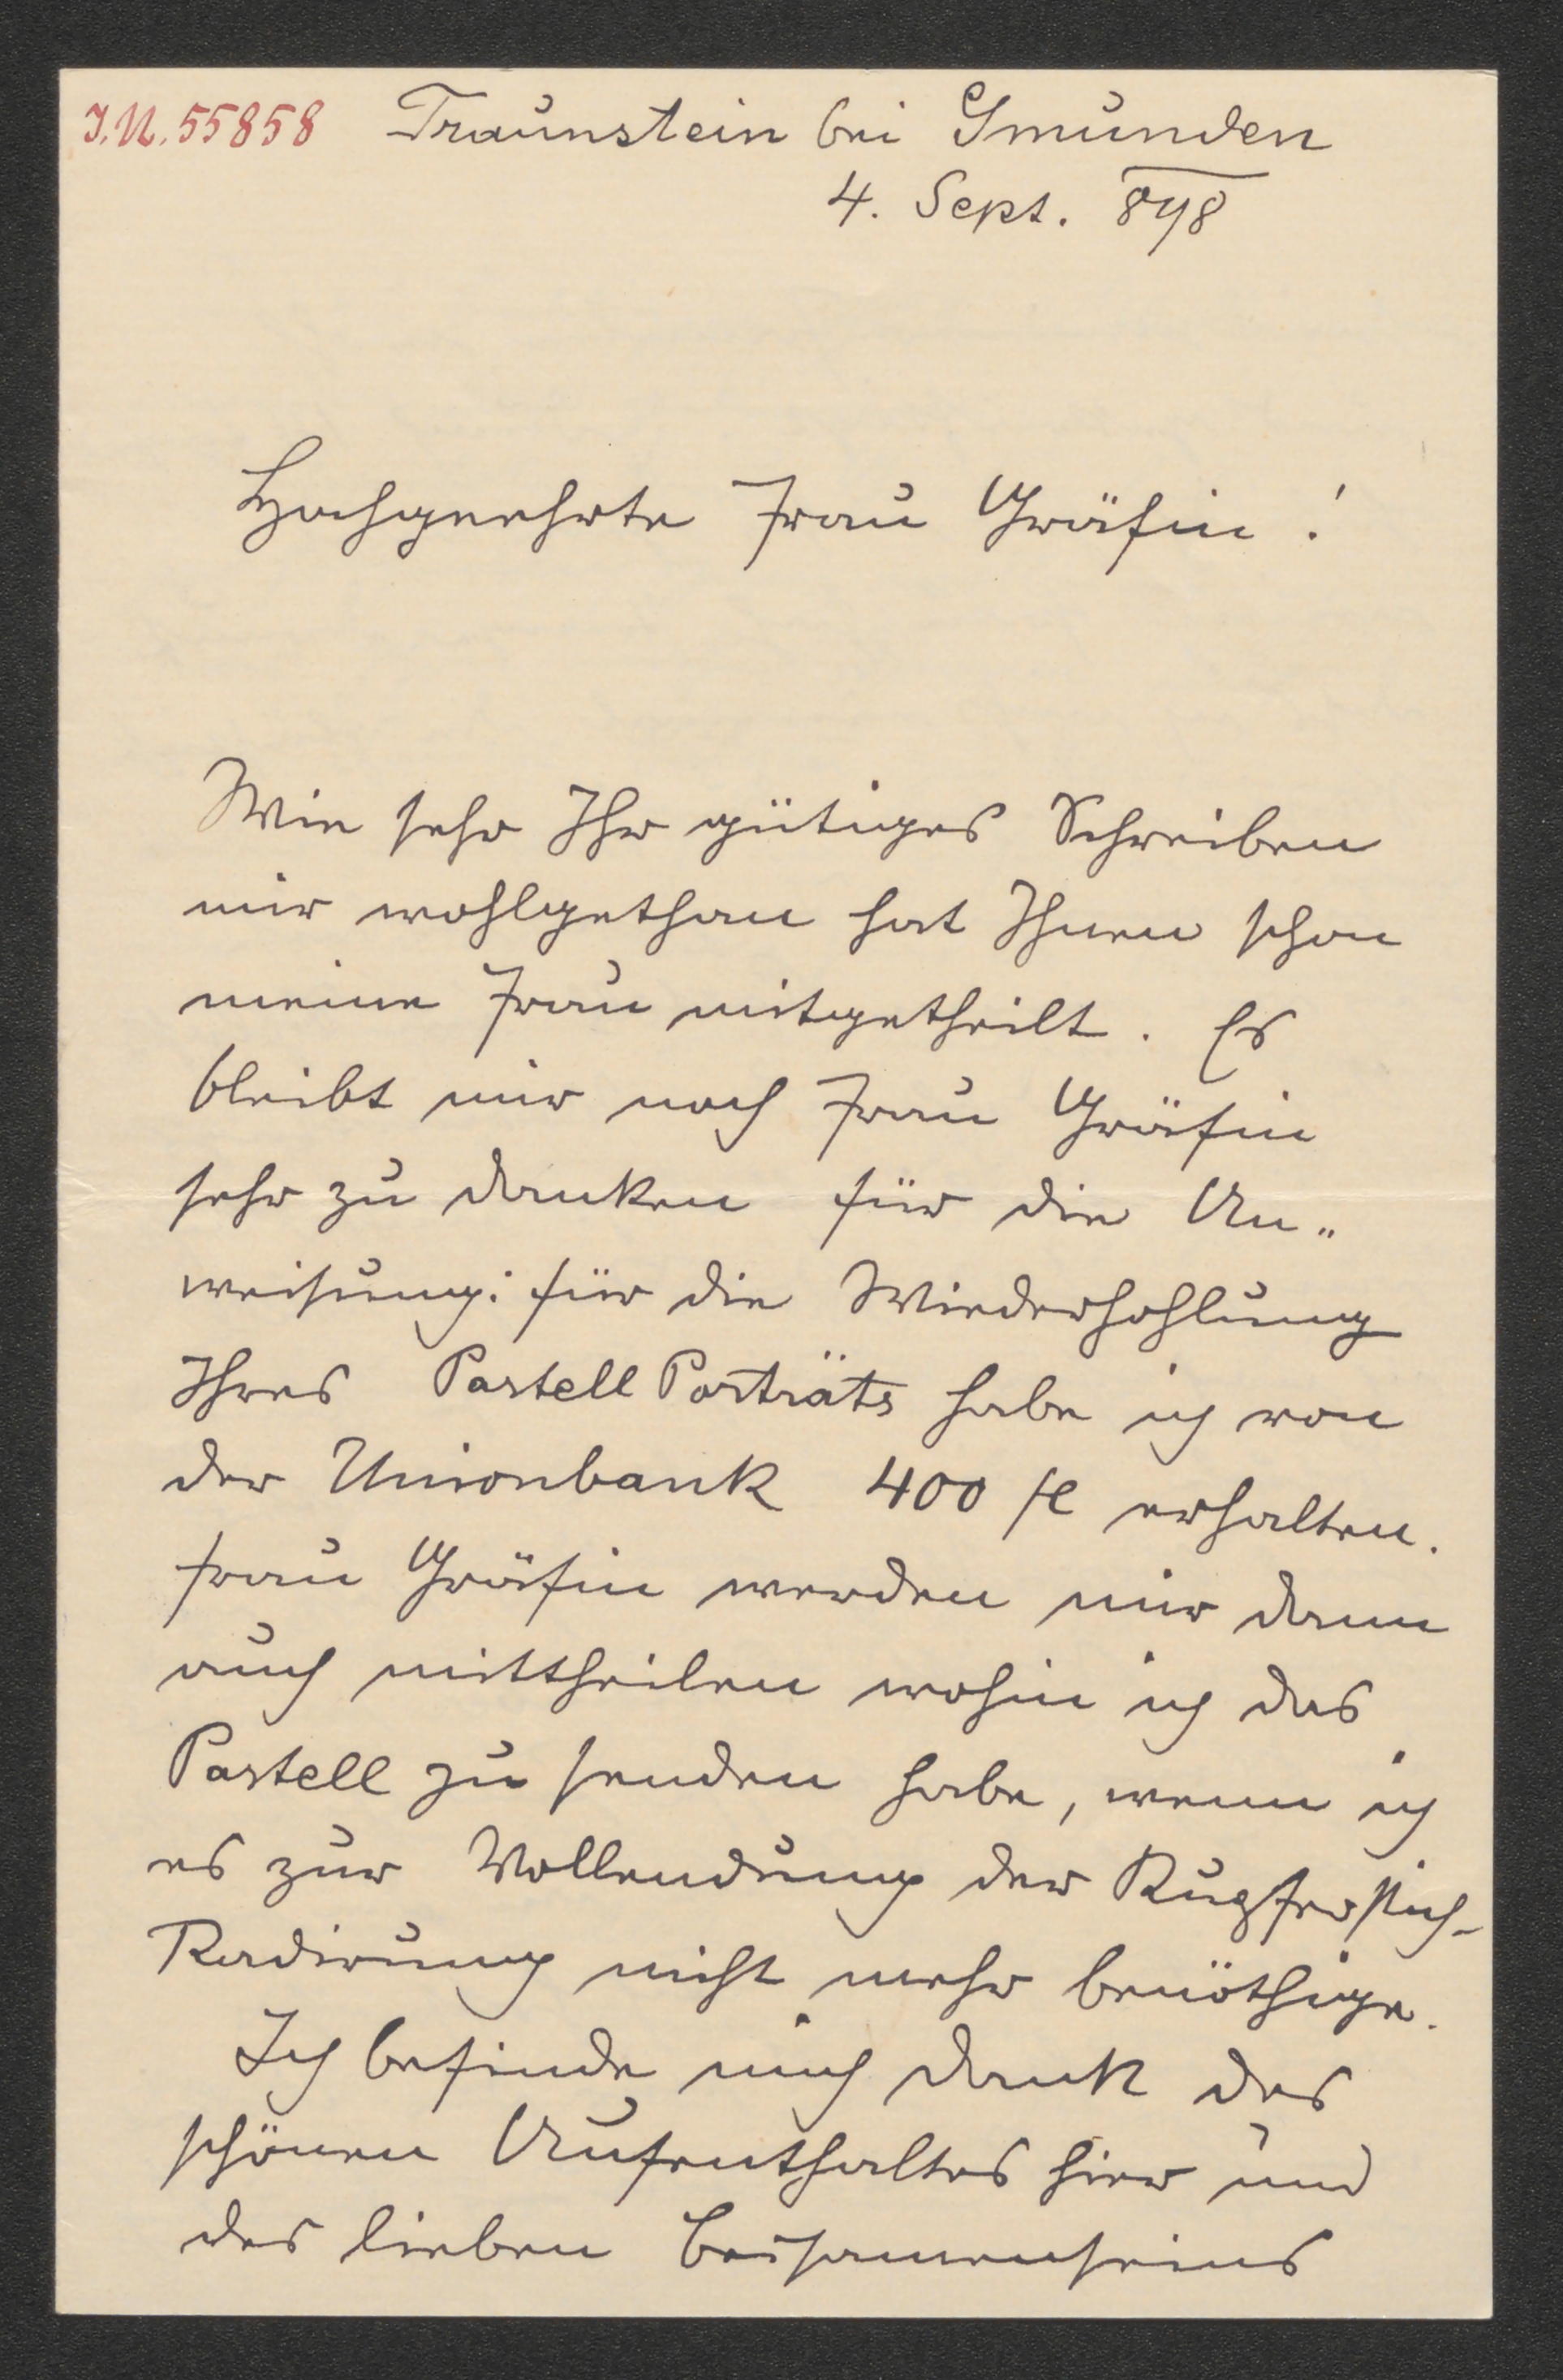 I.N. 55858 Traunstein bei Gmunden
4. Sept. 898
Hochgeehrte Frau Gräfin!
Wie sehr Ihr gütiges Schreiben
mir wohlgethan hat Ihnen schon
meine Frau mitgetheilt. Es
bleibt mir noch Frau Gräfin
sehr zu danken für die An„
weisung: für die Wiederhohlung
Ihres Pastell Porträts habe ich von
der Unionbank 400 fl erhalten.
Frau Gräfin werden mir dann
auch mittheilen wohin ich das
Pastell zu senden habe, wenn ich
es zur Vollendung der Kupferstich-
Radirung nicht mehr benöthige.
Ich befinde mich dank des
schönen Aufenthaltes hier und
des lieben Beisamenseins